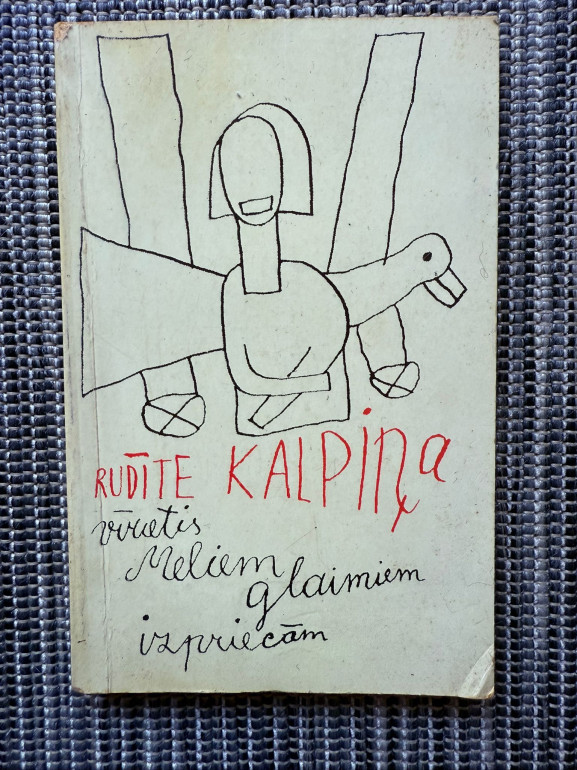 RUDĪTE KALPIņa
vīrietis
Meliem
glaimiem
izpriecām